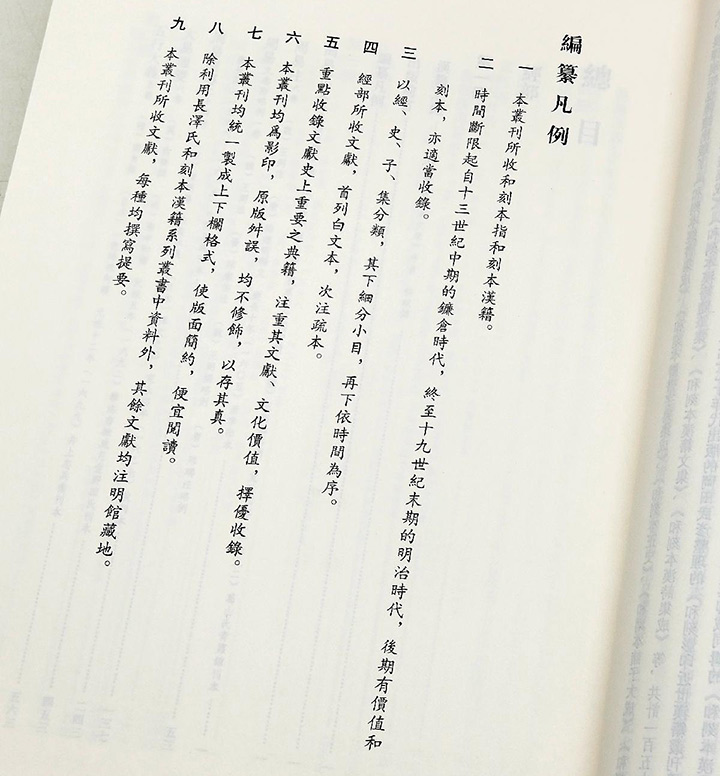 編纂凡例
一 本叢刊所收和刻本指和刻本漢籍。
二 時間斷限起自十三世紀中期的鐮倉時代，終至十九世紀末期的明治時代，後期有價值和
刻本，亦適當收錄。
三 以經、史、子、集分類，其下細分小目，再下依時間為序。
四 經部所收文獻，首列白文本，次注疏本。
五 重點收錄文獻史上重要之典籍，注重其文獻、文化價值，擇優收錄。
六 本叢刊均爲影印，原版舛誤，均不修飾，以存其真。
七 本叢刊均統一製成上下欄格式，使版面簡約，便宜閱讀。
八 除利用長澤氏和刻本漢籍系列叢書中資料外，其餘文獻均注明館藏地。
九 本叢刊所收文獻，每種均撰寫提要。
總目